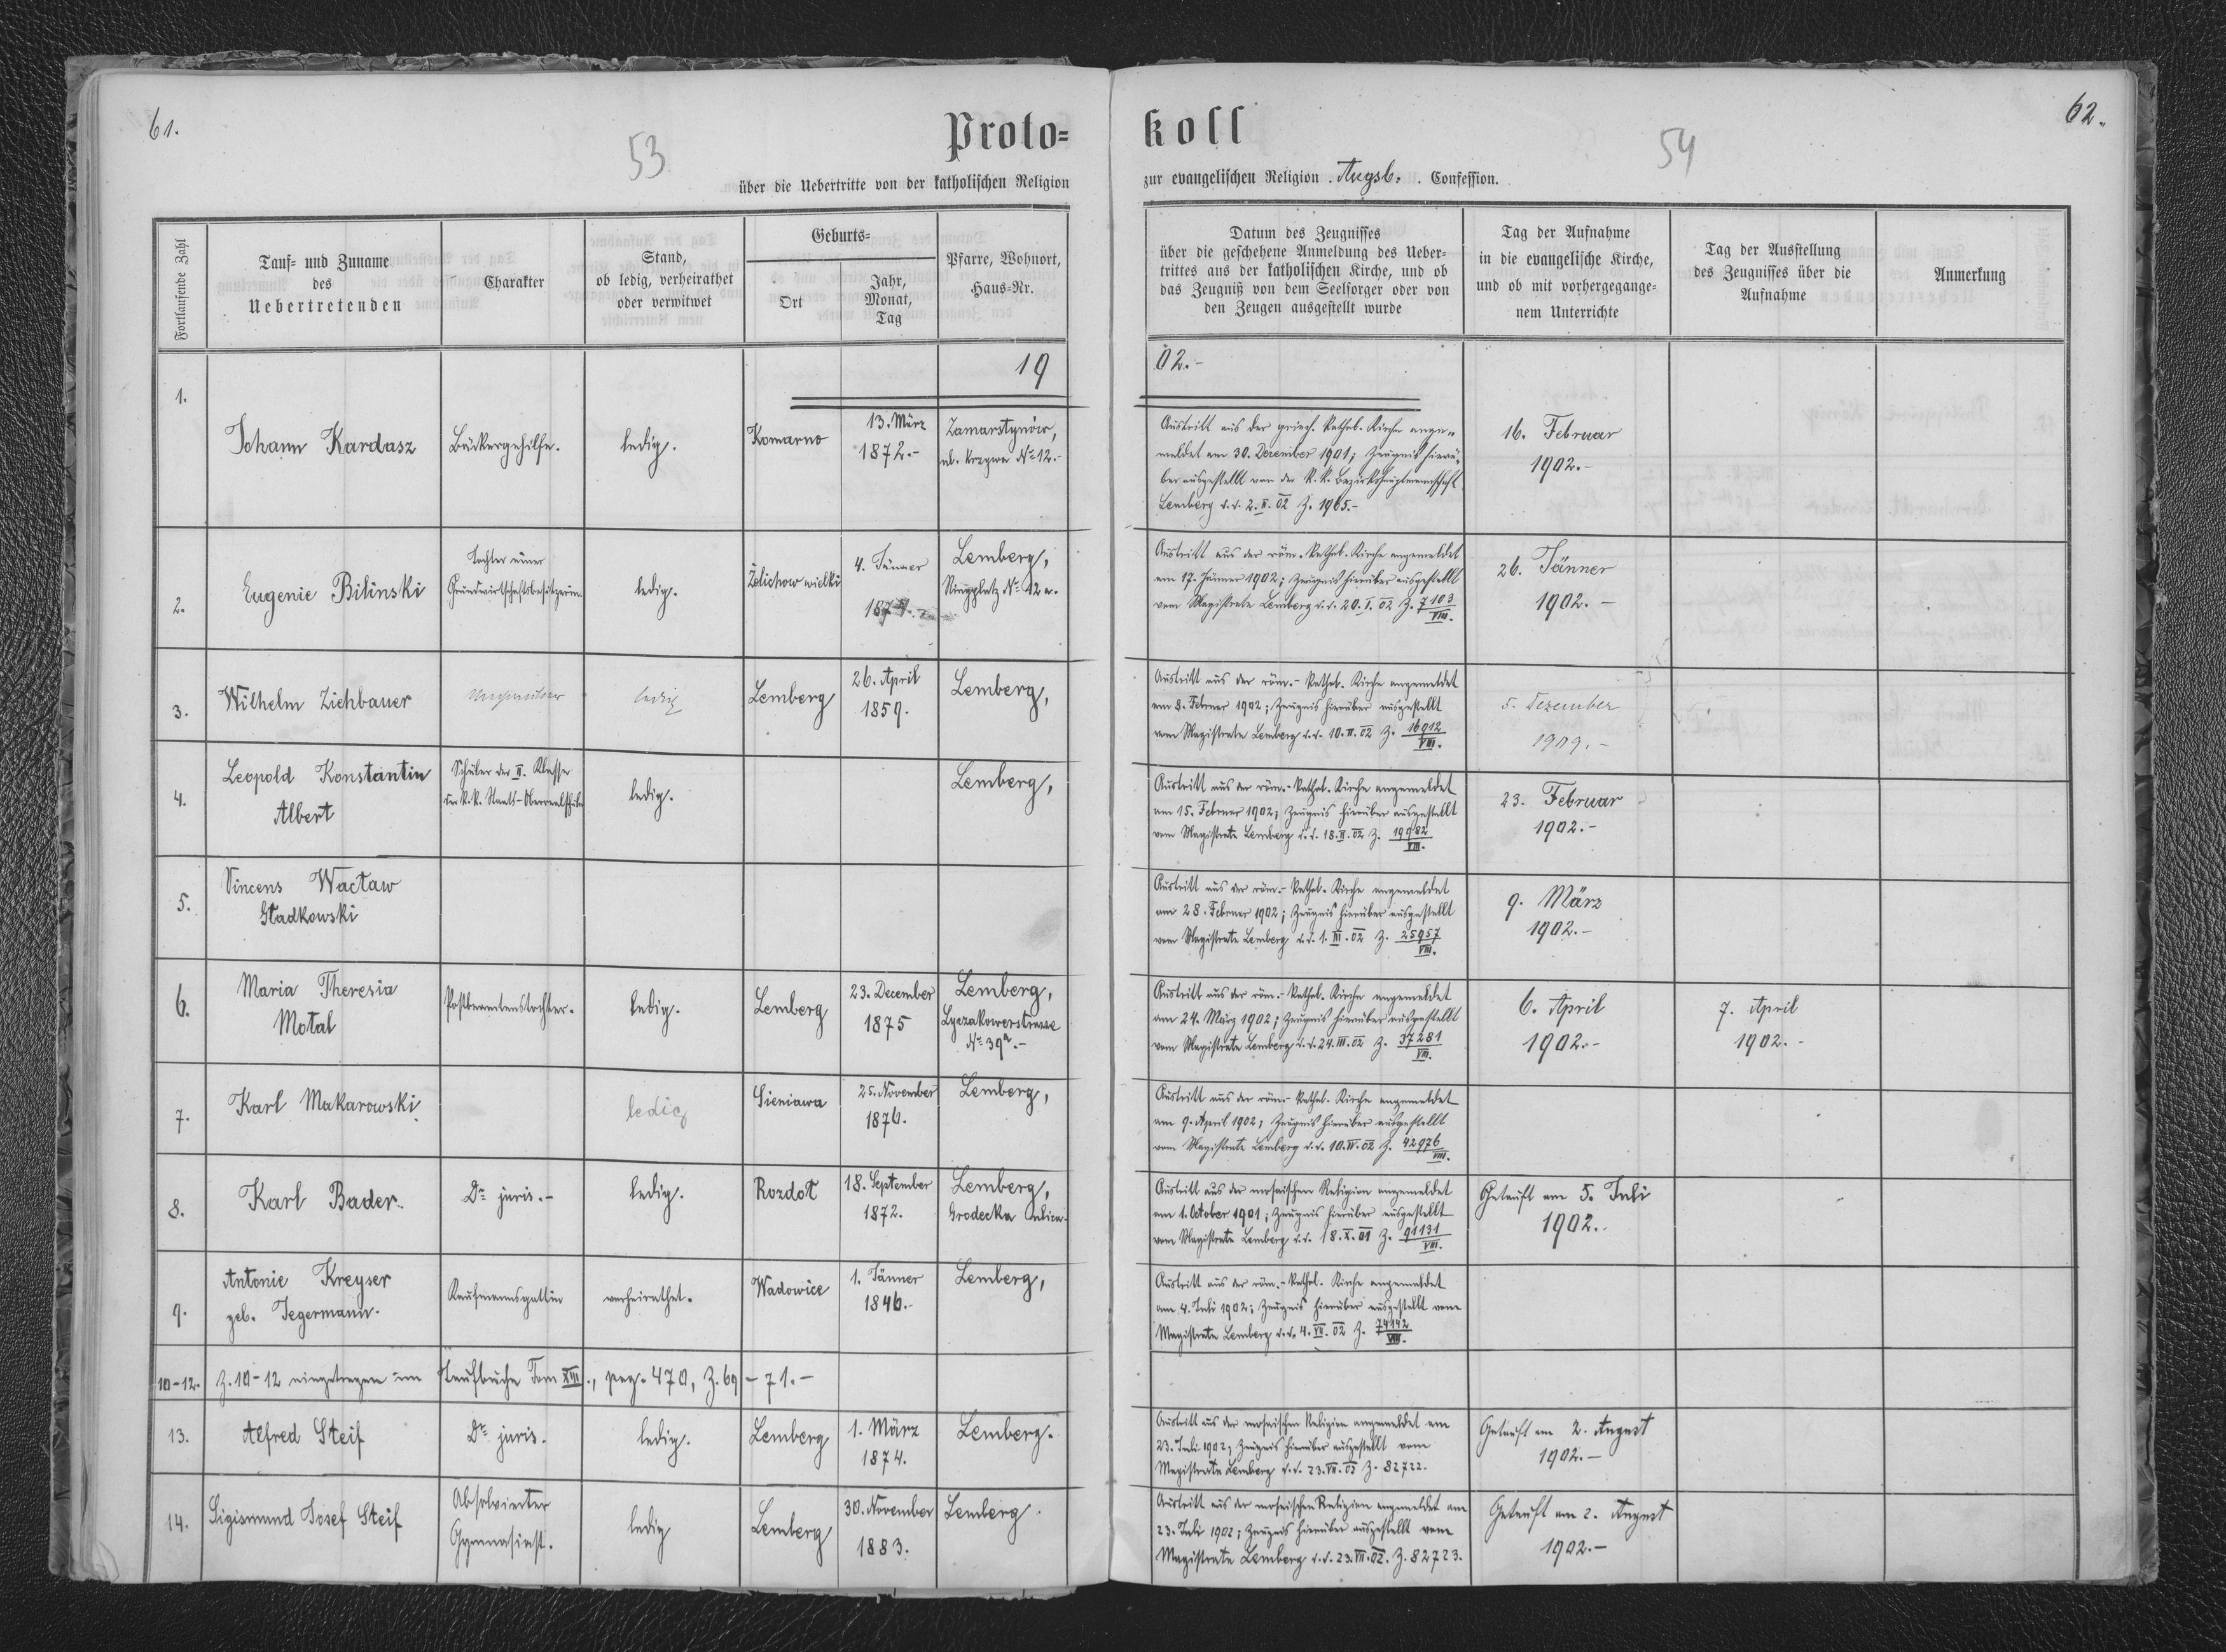 61.
53
Proto=
über die Uebertritte von der katholischen Religion
Fortlaufende Zahl
Tauf= und Zuname
des
Uebertretenden
Charakter
Stand,
ob ledig, verheirathet
oder verwitwet
Geburts=
Ort
Jahr,
Monat,
Tag
Pfarre, Wohnort,
Haus=Nr.
19
1.
Johann Kardasz
Bäckergehilfe.
ledig.
Komarno
13. März
1872.-
Zamarstynów,
ul. krzywa No 12.-
2.
Eugenie Bilinski
Tochter einer
Grundwirtschaftsbesitzerin.
ledig.
Želichow wielki
4. Jänner
Lemberg,
Ringplatz No 12 a.
3.
Wilhelm Zichbauer
ledig
Lemberg
26. April
1859.
Lemberg,
4.
Leopold Konstantin
Albert
Schüler der II. Klasse
der k. k. Staats-Oberrealschule
ledig.
Lemberg,
5.
Vincens Wacław
Gładkowski
6.
Maria Theresia
Motal
Postbeamtenstochter.
ledig.
Lemberg
23. December
1875
Lemberg,
Lyczakowerstrasse
No 39a.-
7.
Karl Makarowski
ledig
Sieniawa
25. November
1876.
Lemberg,
8.
Karl Bader.
Dr juris.-
ledig.
Rozdoł
18. September
1872.
Lemberg,
Grodecka
9.
Antonie Kreyser
geb. Jegermann.
Kaufmannsgattin
verheirathet.
Wadowice
1. Jänner
1846.-
Lemberg,
10-12.
Z. 10-12 eingetragen im Taufbuche Tom XIII., pag. 470, Z. 69-71.-
13.
Alfred Steif
Dr juris.
ledig.
Lemberg
1. März
1874.
Lemberg.
14.
Sigismund Josef Steif
Absolvierter
Gymnasiast.
ledig
Lemberg
30. November
1883.
Lemberg.
62.
54
koll
zur evangelischen Religion Augsb. Confession.
Datum des Zeugnisses
über die geschehene Anmeldung des Ueber=
trittes aus der katholischen Kirche, und ob
das Zeugniß von dem Seelsorger oder von
den Zeugen ausgestellt wurde
Tag der Aufnahme
in die evangelische Kirche,
und ob mit vorhergegange=
nem Unterrichte
Tag der Ausstellung
des Zeugnisses über die
Aufnahme
Anmerkung
02.-
Austritt aus der griech. kathol. Kirche ange=
meldet am 30. Dezember 1901; Zeugnis hierü=
ber ausgestellt von der k. k. Bezirkshauptmannschaft
Lemberg d. d. 2. II. 02 Z. 1965.-
16. Februar
1902.-
Austritt aus der röm. kathol. Kirche angemeldet
am 17. Jänner 1902; Zeugnis hierüber ausgestellt
vom Magistrate Lemberg d. d. 20. I. 02 Z. 7103/VIII.
26. Jänner
1902.-
Austritt aus der röm.- kathol. Kirche angemeldet
am 8. Februar 1902; Zeugnis hierüber ausgestellt
vom Magistrate Lemberg d. d. 10. II. 02 Z. 16912/VIII.
5. Dezember
1909.-
Austritt aus der röm.- kathol. Kirche angemeldet
am 15. Februar 1902; Zeugnis hierüber ausgestellt
vom Magistrate Lemberg d. d. 18. II. 02 Z. 19982/VIII.
23. Februar
1902.-
Austritt aus der röm.- kathol. Kirche angemeldet
am 28. Februar 1902; Zeugnis hierüber ausgestellt
vom Magistrate Lemberg d. d. 1. III. 02 Z. 25957/VIII.
9. März
1902.-
Austritt aus der röm.- kathol. Kirche angemeldet
am 24. März 1902; Zeugnis hierüber ausgestellt
vom Magistrate Lemberg d. d. 24. III. 02 Z. 37281/VIII.
6. April
1902.-
7. April
1902.-
Austritt aus der röm.- kathol. Kirche angemeldet
am 9. April 1902; Zeugnis hierüber ausgestellt
vom Magistrate Lemberg d. d. 10. IV. 02 Z. 42976/VIII.
Austritt aus der mosaischen Religion angemeldet
am 1. October 1901; Zeugnis hierüber ausgestellt
vom Magistrate Lemberg d. d. 18. X. 01 Z. 91131/VIII.
Getauft am 5. Juli
1902.
Austritt aus der röm.- kathol. Kirche angemeldet
am 4. Juli 1902; Zeugnis hierüber ausgestellt vom
Magistrate Lemberg d. d. 4. VII. 02 Z. 74142/VIII.
Austritt aus der mosaischen Religion angemeldet am
23. Juli 1902; Zeugnis hierüber ausgestellt vom
Magistrate Lemberg d. d. 23. VII. 02 Z. 82722.
Getauft am 2. August
1902.-
Austritt aus der mosaischen Religion angemeldet am
23. Juli 1902; Zeugnis hierüber ausgestellt vom
Magistrate Lemberg d. d. 23. VII. 02. Z. 82723.
Getauft am 2. August
1902.-